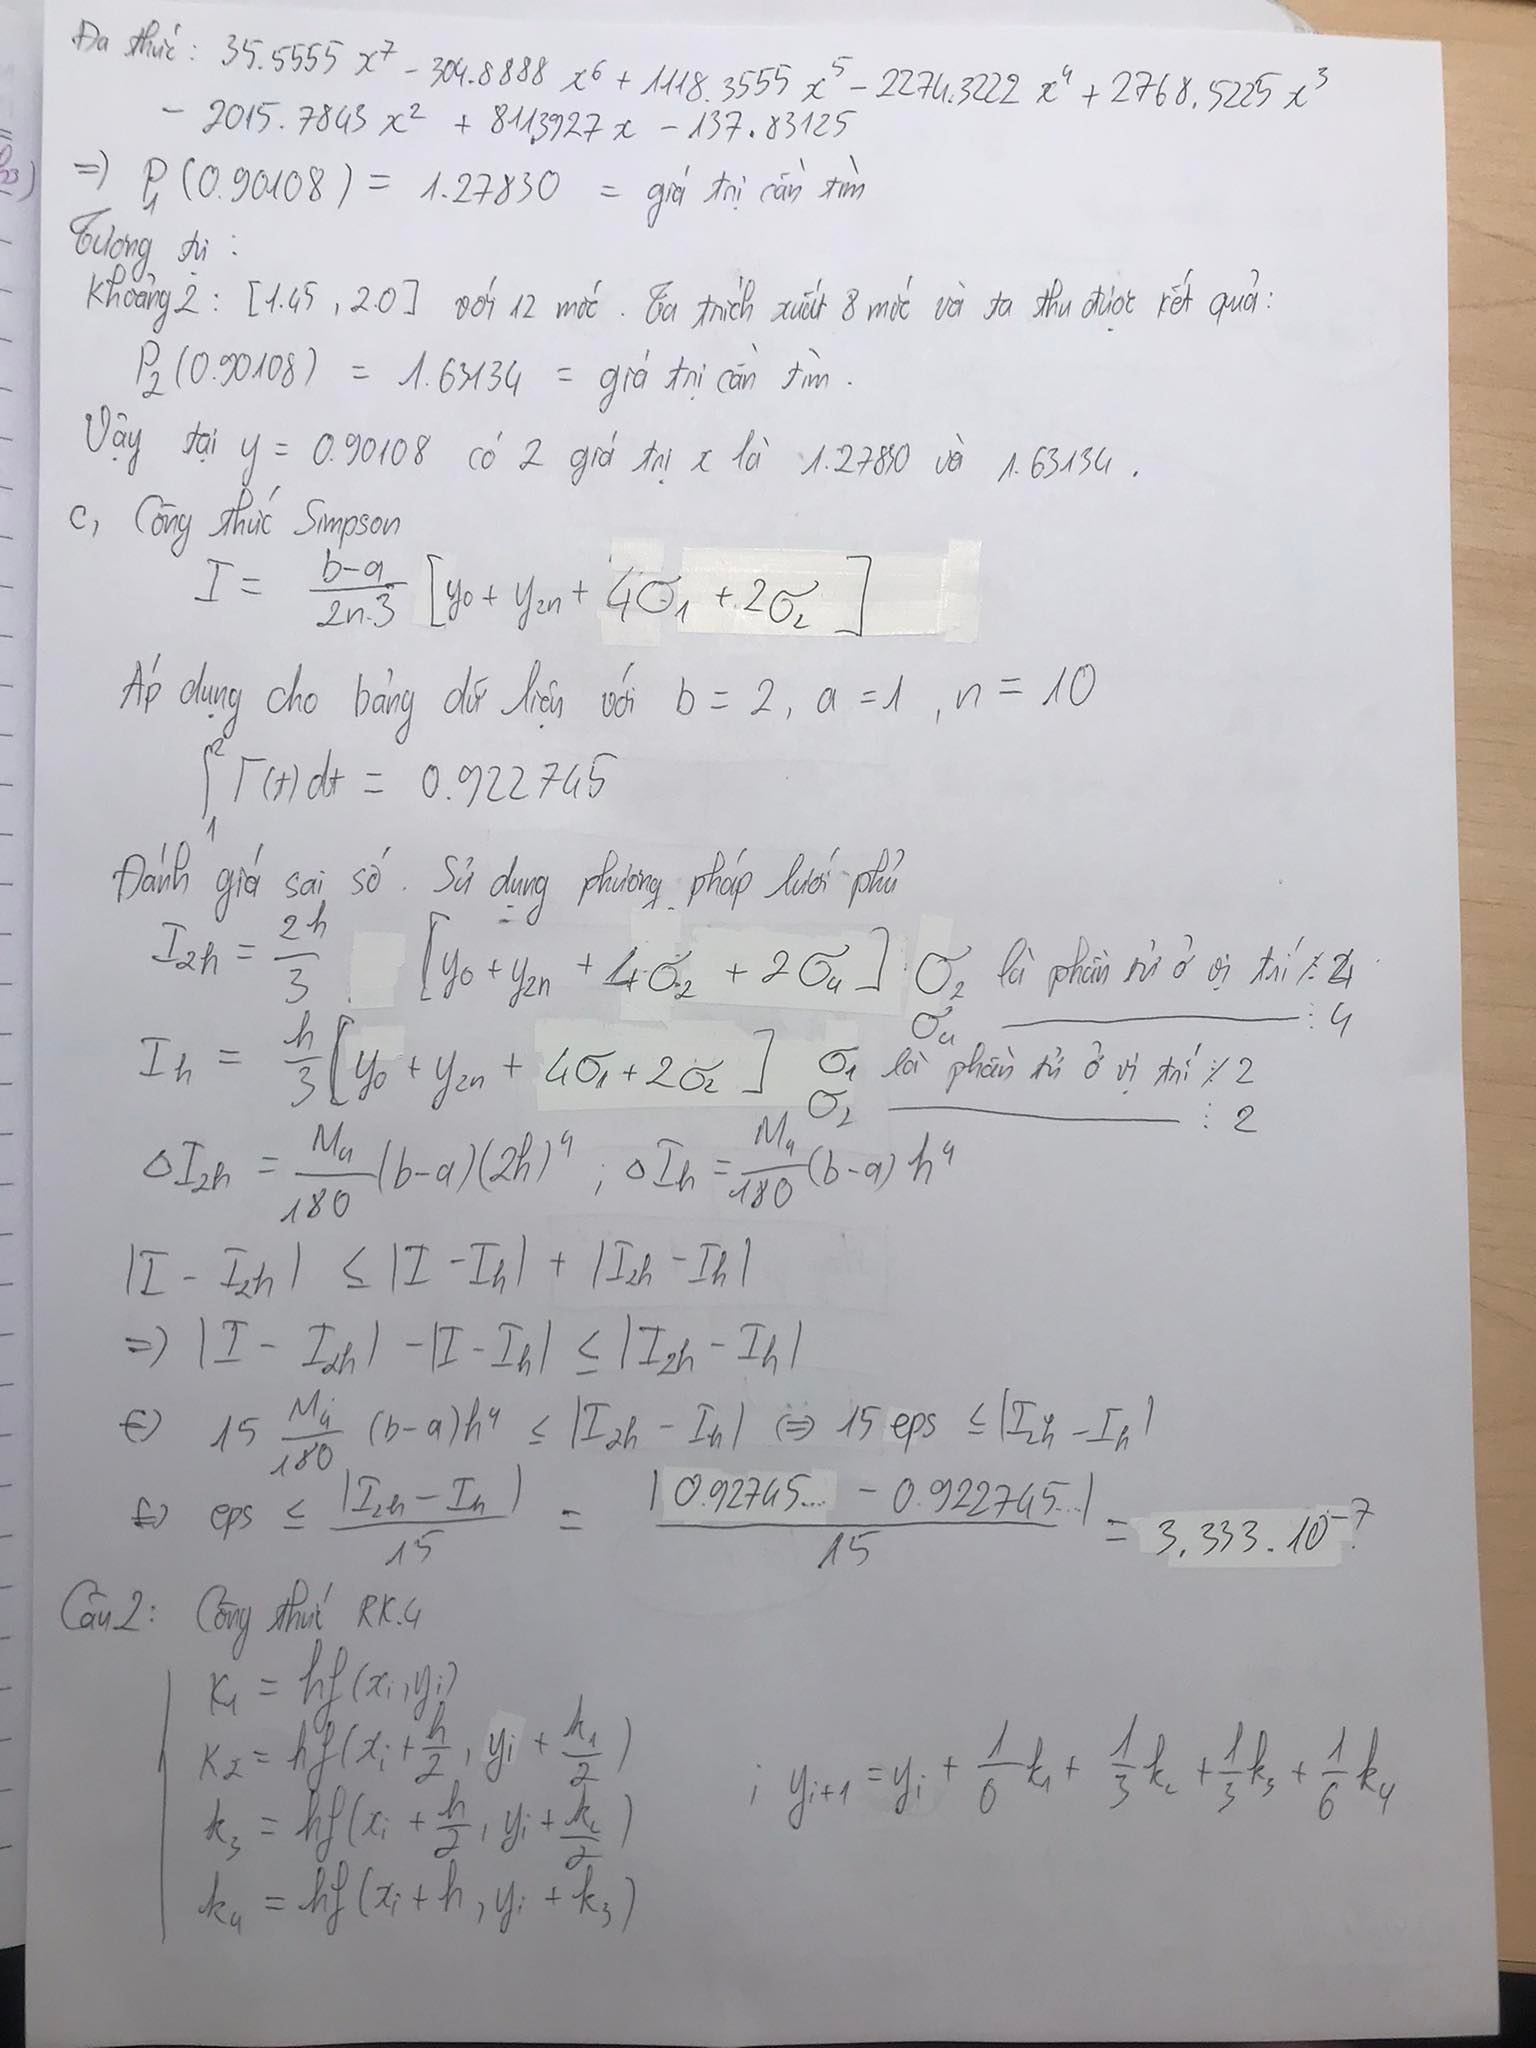 Đa thức: 35.5555 x⁷ - 304.8888 x⁶ + 1118.3555 x⁵ - 2274.3222 x⁴ + 2768.5225 x³
- 2015.7843 x² + 811.3927 x - 137.83125
=> P₁(0.90108) = 1.27830 = giá trị cần tìm
Tương tự :
Khoảng 2: [1.45, 2.0] với 12 mốc. Ta trích xuất 8 mốc và ta thu được kết quả:
P₂(0.90108) = 1.63134 = giá trị cần tìm.
Vậy tại y = 0.90108 có 2 giá trị x là 1.27830 và 1.63134.
c, Công thức Simpson
I = (b-a)/(2n.3) [y₀ + y₂ₙ + 4σ₁ + 2σ₂]
Áp dụng cho bảng dữ liệu với b = 2, a = 1, n = 10
∫₁² Γ(t)dt = 0.922745
Đánh giá sai số. Sử dụng phương pháp lưới phủ
I₂ₕ = 2h/3 [y₀ + y₂ₙ + 4σ₂ + 2σ₄] σ₂ là phần tử ở vị trí ⋮̸
σ₄ ——— ⋮ 4
Iₕ = h/3 [y₀ + y₂ₙ + 4σ₁ + 2σ₂] σ₁ là phần tử ở vị trí ⋮̸ 2
σ₂ ——— ⋮ 2
△I₂ₕ = M₄/180 (b-a)(2h)⁴ ; △Iₕ = M₄/180 (b-a) h⁴
|I - I₂ₕ| ≤ |I - Iₕ| + |I₂ₕ - Iₕ|
=> |I - I₂ₕ| - |I - Iₕ| ≤ |I₂ₕ - Iₕ|
⇔ 15 M₄/180 (b-a)h⁴ ≤ |I₂ₕ - Iₕ| ⇔ 15 eps ≤ |I₂ₕ - Iₕ|
⇔ eps ≤ |I₂ₕ - Iₕ|/15 = |0.92745... - 0.922745...|/15 = 3.333.10⁻⁷
Câu 2: Công thức RK.4
K₁ = hf(xᵢ, yᵢ)
K₂ = hf(xᵢ + h/2, yᵢ + k₁/2)
k₃ = hf(xᵢ + h/2, yᵢ + k₂/2) ; yᵢ₊₁ = yᵢ + 1/6 k₁ + 1/3 k₂ + 1/3 k₃ + 1/6 k₄
k₄ = hf(xᵢ + h, yᵢ + k₃)